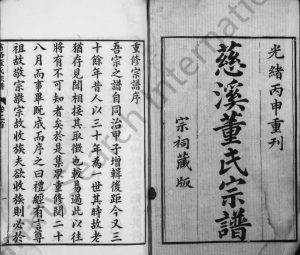 光緒丙申重刋
慈溪董氏宗譜
宗祠藏版
重修宗譜序
吾宗之譜自同治甲子增輯後距今又三
十餘年昔人以三十年為一世其時故老
猶存見聞相接其取徵也較易過此以往
將有不可知者矣於是集衆重修閱二十
八月而事畢既成而序之曰禮經有言尊
祖故敬宗敬宗故收族夫欲收族則必於